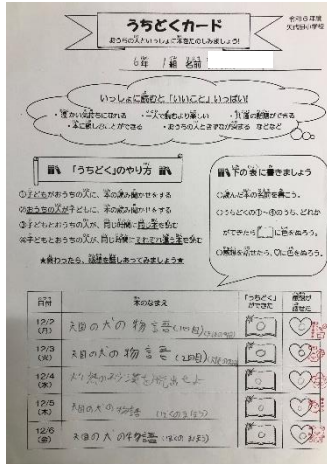 うちどくカード
おうちの人といっしょに本をたのしみましょう!
令和6年度
6年 1組 名前
いっしょに読むと「いいこと」いっぱい!
・温かい気持ちになれる ・一人で読むより楽しい ・共通の話題ができる
・本に親しむことができる ・おうちの人ときずなが深まる などなど
「うちどく」のやり方
①子どもがおうちの人に、本の読み聞かせをする
②おうちの人が子どもに、本の読み聞かせをする
③子どもとおうちの人が、同じ時間に同じ本を読む
④子どもとおうちの人が、同じ時間にそれぞれ違う本を読む
★終わったら、感想を話しあってみましょう★
下の表に書きましょう
○読んだ本の名前を書こう。
○うちどくの①~④のうち、どれか
ができたら に色をぬろう。
○感想を話せたら、♡に色をぬろう。
日付
本のなまえ
「うちどく」
ができた
感想が
話せた
12/2
(月)
天国の犬の物語(1回目)
12/3
(火)
天国の犬の物語(2回目)
12/4
(水)
12/5
(木)
天国の犬の物語
12/6
(金)
天国の犬の物語